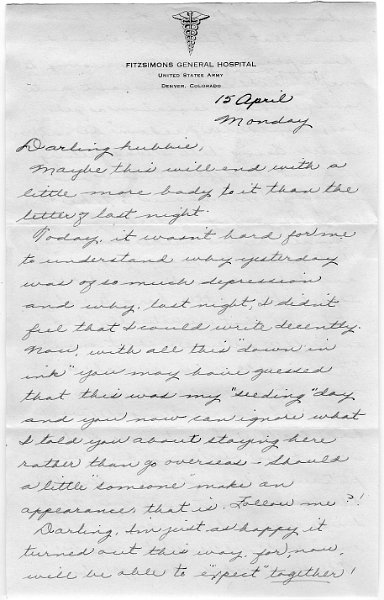 FITZSIMONS GENERAL HOSPITAL
UNITED STATES ARMY
DENVER, COLORADO
15 April
Monday
Darling hubbie,
Maybe this will end with a
little more body to it than the
letter of last night.
Today, it wasn't hard for me
to understand why yesterday
was of so much depression
and why, last night, I didn't
feel that I could write decently.
Now, with all this "down in
ink" you may have guessed
that this was my "seeding" day
and you now can ignore what
I told you about staying here
rather than go overseas - should
a little "someone" make an
appearance, that is. Follow me?!
Darling, I'm just as happy it
turned out this way, for, now,
will be able to "expect" together!